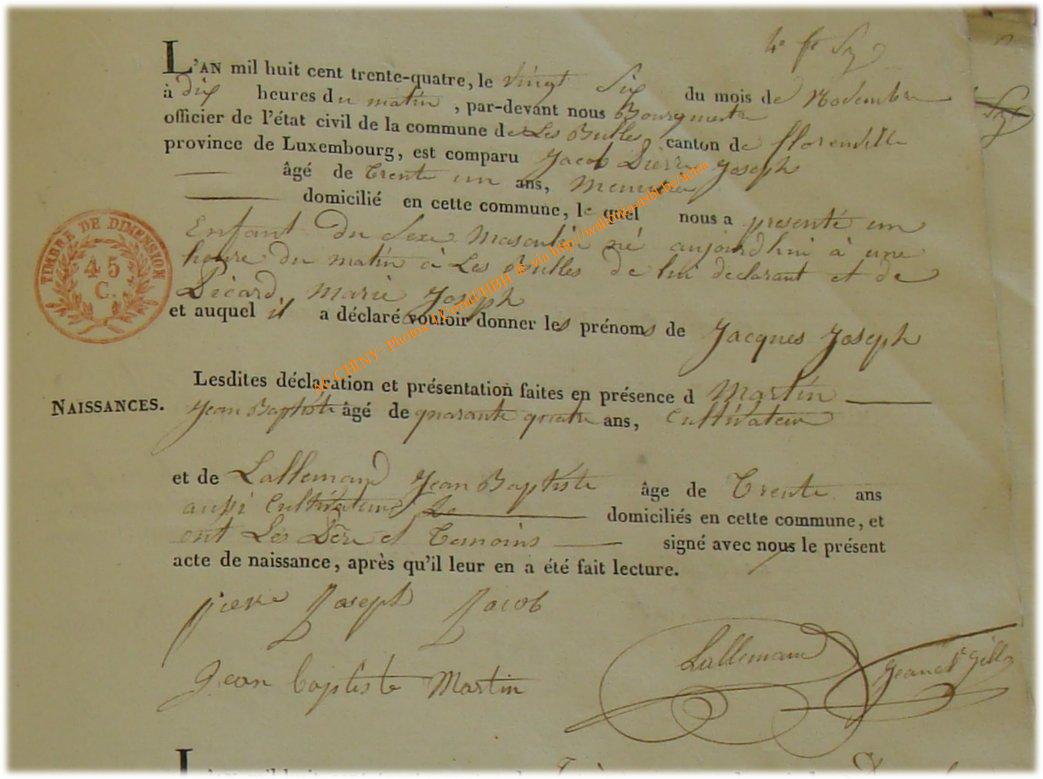 L'AN mil huit cent trente-quatre, le vingt Six du mois de Novembre
à dix heures du matin, par-devant nous Bourgmestre
officier de l'état civil de la commune de Les Bulles canton de florenville
province de Luxembourg, est comparu Jacob Pierre Joseph
âgé de Trente un ans, Menuisier
domicilié en cette commune, le quel nous a presenté un
Enfant du Sexe Masculin né aujourdhui à une
heure du matin à Les Bulles de lui declarant et de
Picard Marie Joseph
et auquel il a déclaré vouloir donner les prénoms de Jacques Joseph
TIMBRE DE DIMENSION
45
C.
Lesdites déclaration et présentation faites en présence d Martin
NAISSANCES.
Jean Baptiste âgé de quarante quatre ans, Cultivateur
et de Lallemand Jean Baptiste âge de Trente ans
aussi Cultivateur domiciliés en cette commune, et
ont Les Père et Temoins signé avec nous le présent
acte de naissance, après qu'il leur en a été fait lecture.
piere Joseph Jacob
Lallemand
Jean baptiste Martin